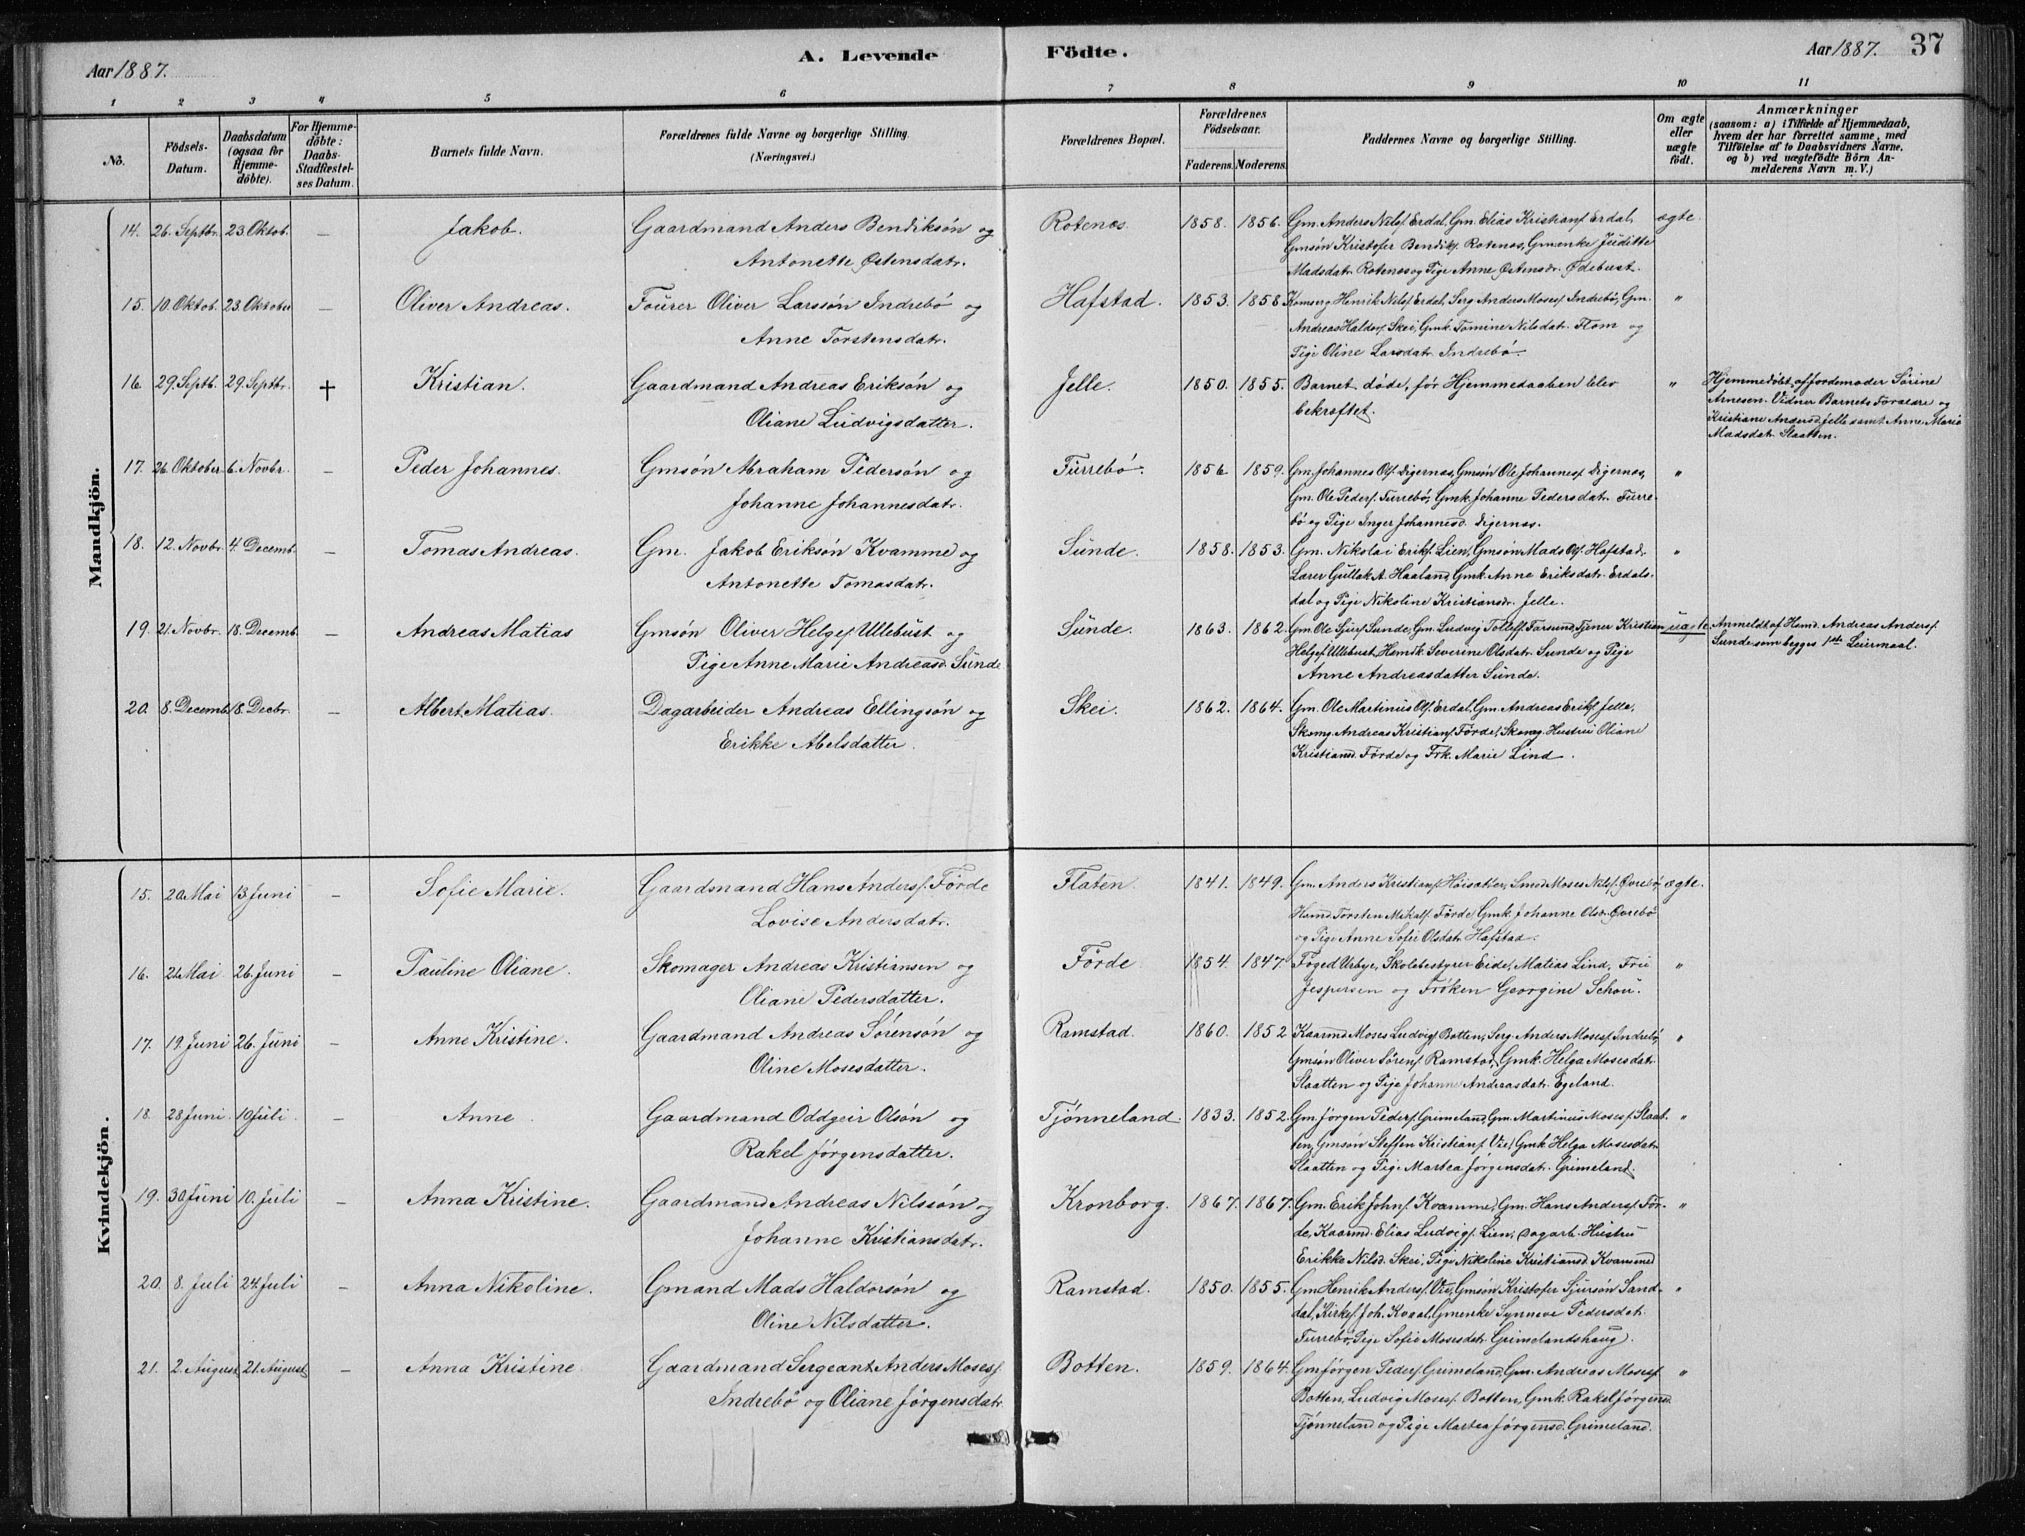 Aar 1887.
A. Levende
Födte.
Aar 1887.
37
1 2 3 4 5 6 7 8 9 10 11
No.
Födsels-Datum.
Daabsdatum (ogsaa for Hjemme-döbte).
For Hjemme-döbte: Daabs-Stadfæstel-ses Datum.
Barnets fulde Navn.
Forældrenes fulde Navne og borgerlige Stilling.
(Næringsvei.)
Forældrenes Bopæl.
Forældrenes Födselsaar.
Faderens. Moderens.
Faddernes Navne og borgerlige Stilling.
Om ægte eller uægte födt.
Anmærkninger
(saasom: a) i Tilfælde af Hjemmedaab,
hvem der har forrettet samme, med
Tilföielse af to Daabsvidners Navne,
og b) ved uægtefödte Börn An-
melderens Navn m. V.)
Mandkjön.
14. 26. Septbr. 23. Oktob. — Jakob. Gaardmand Anders Bendiksön og Rotenes 1858. 1856. Gm. Anders Nilsf. Erdal, Gm. Elias Kristiansf. Erdal, ægte.
Antonette Østensdatr. Gmsön Kristofer Bendiksf. Rotenes, Gmenke Juditte
Madsdatr. Rotenes og Pige Anne Østensdr. Ødebust.
15. 10. Oktob. 23. Oktober — Oliver Andreas. Fourer Oliver Larssön Indrebö og Hafstad. 1853. 1858. Komserg. Henrik Nilsf. Erdal, Serg. Anders Mosesf. Indrebö, Gm. "
Anne Torstensdatr. Andreas Haldorsf. Skei, Gmk. Tomine Nilsdatr. Flom og
Pige Oline Larsdatr. Indrebö.
16. 29. Septb. 29. Septbr. † Kristian. Gaardmand Andreas Eriksön og Jelle. 1850. 1855. Barnet döde, för Hjemmedaaben blev " Hjemmedöbt af Jordemoder Sörine
Oliane Ludvigsdatter. bekræftet. Arnesen. Vidner Barnets Forældre og
Kristiane Andersd. Jelle samt Anne Marie
Madsdatr. Slaatten.
17. 26. Oktober 6. Novbr. — Peder Johannes. Gmsön Abraham Pedersön og Furrebö. 1856. 1859. Gm. Johannes Olsf. Digernes, Gmsön Ole Johannesf. Digernes, "
Johanne Johannesdatr. Gm. Ole Pedersf. Furrebö, Gmk. Johanne Pedersdatr. Furre-
bö og Pige Inger Johannesd. Digernes.
18. 12. Novbr. 4. Decemb. — Tomas Andreas. Gm. Jakob Eriksön Kvamme og Sunde. 1858. 1853. Gm. Nikolai Eriksf. Lien, Gmsön Mads Olsf. Hafstad, "
Antonette Tomasdatr. Lærer Gullak A. Haaland, Gmk. Anne Eriksdatr. Erdals-
dal og Pige Nikoline Kristiansdr. Jelle.
19. 21. Novbr. 18. Decemb. — Andreas Matias Gmsön Oliver Helgesf. Ullebust og Sunde. 1863. 1862. Gm. Ole Sjursf. Sunde, Gm. Ludvig Tollefsf. Farsund, Tjener Kristian uægte Anmeldt af Hsmd. Andreas Andersf.
Pige Anne Marie Andreasd. Sunde Helgesf. Ullebust, Hsmdk. Severine Olsdatr. Sunde og Pige Sunde som begges 1ste Leiermaal.
Anne Andreasdatter Sunde.
20. 8. Decemb. 18. Decbr. — Albert Matias. Dagarbeider Andreas Ellingsön og Skei. 1862. 1864. Gm. Ole Martinus Olsf. Erdal, Gm. Andreas Eriksf. Jelle,
Erikke Abelsdatter. Skomg. Andreas Kristiansf. Förde, Skomg. Hustru Oliane
Kristiansd. Förde og Frk. Marie Lind.
Kvindekjön.
15. 20. Mai 13. Juni — Sofie Marie. Gaardmand Hans Andersf. Förde Flaten. 1841. 1849. Gm. Anders Kristiansf. Høisæter, Smed Moses Nilsf. Øvrebö, ægte.
Lovise Andersdatr. Hsmd. Torsten Mikalsf. Förde, Gmk. Johanne Olsdr. Øvrebö
og Pige Anne Sofie Olsdatr. Hafstad.
16. 21. Mai 26. Juni — Pauline Oliane. Skomager Andreas Kristiansen og Förde 1854. 1847. Foged Urbye, Skolebestyrer Eide, Matias Lind, Fru "
Oliane Pedersdatter. Jespersen og Fröken Georgine Schou.
17. 19. Juni 26. Juni — Anne Kristine. Gaardmand Andreas Sörensön og Ramstad. 1860. 1852 Kaarmd. Moses Ludvigsf. Botten, Serg. Anders Mosesf. Indrebö, "
Oline Mosesdatter. Gmsön Oliver Sörensf. Ramstad, Gmk. Helga Mosesdatr.
Slaatten og Pige Johanne Andreasdatr. Egeland.
18. 28. Juni 10. Juli. — Anne Gaardmand Oddgeir Olsön og Tjönneland. 1833. 1852. Gm. Jörgen Pedersf. Grimeland, Gm. Martinus Mosesf. Slaat- "
Rakel Jörgensdatter. ten, Gmsön Steffen Kristiansf. Vie, Gmk. Helga Mosesdatr.
Slaatten og Pige Martea Jörgensdatr. Grimeland.
19. 30. Juni 10. Juli — Anna Kristine. Gaardmand Andreas Nilssön og Kronborg. 1867. 1867. Gm. Erik Johnsf. Kvamme, Gm. Hans Andersf. För- "
Johanne Kristiansdatr. de, Kaarmd. Elias Ludvigsf. Lien, Dagarb. Hustru
Erikke Nilsd. Skei, Pige Nikoline Kristiansd. Kvamme
20. 8. Juli 24. Juli — Anna Nikoline. Gmand Mads Haldorsön og Ramstad. 1850. 1855. Gm. Henrik Andersf. Vie, Gmsön Kristofer Sjursön Sand- "
Oline Nilsdatter. dal, Kirkes. Joh. Kvaal, Gmenke Synneve Pedersdatr.
Furrebö, Pige Sofie Mosesdatr. Grimelandshaug.
21. 2. August 21. August — Anna Kristine. Gaardmand Sergeant Anders Mosesf. Botten. 1859. 1864. Gm. Jörgen Pedersf. Grimeland, Gm. Andreas Mosesf. "
Indrebö og Oliane Jörgensdatr. Botten, Ludvig Mosesf. Botten, Gmk. Rakel Jörgensd.
Tjönneland og Pige Martea Jörgensd. Grimeland.